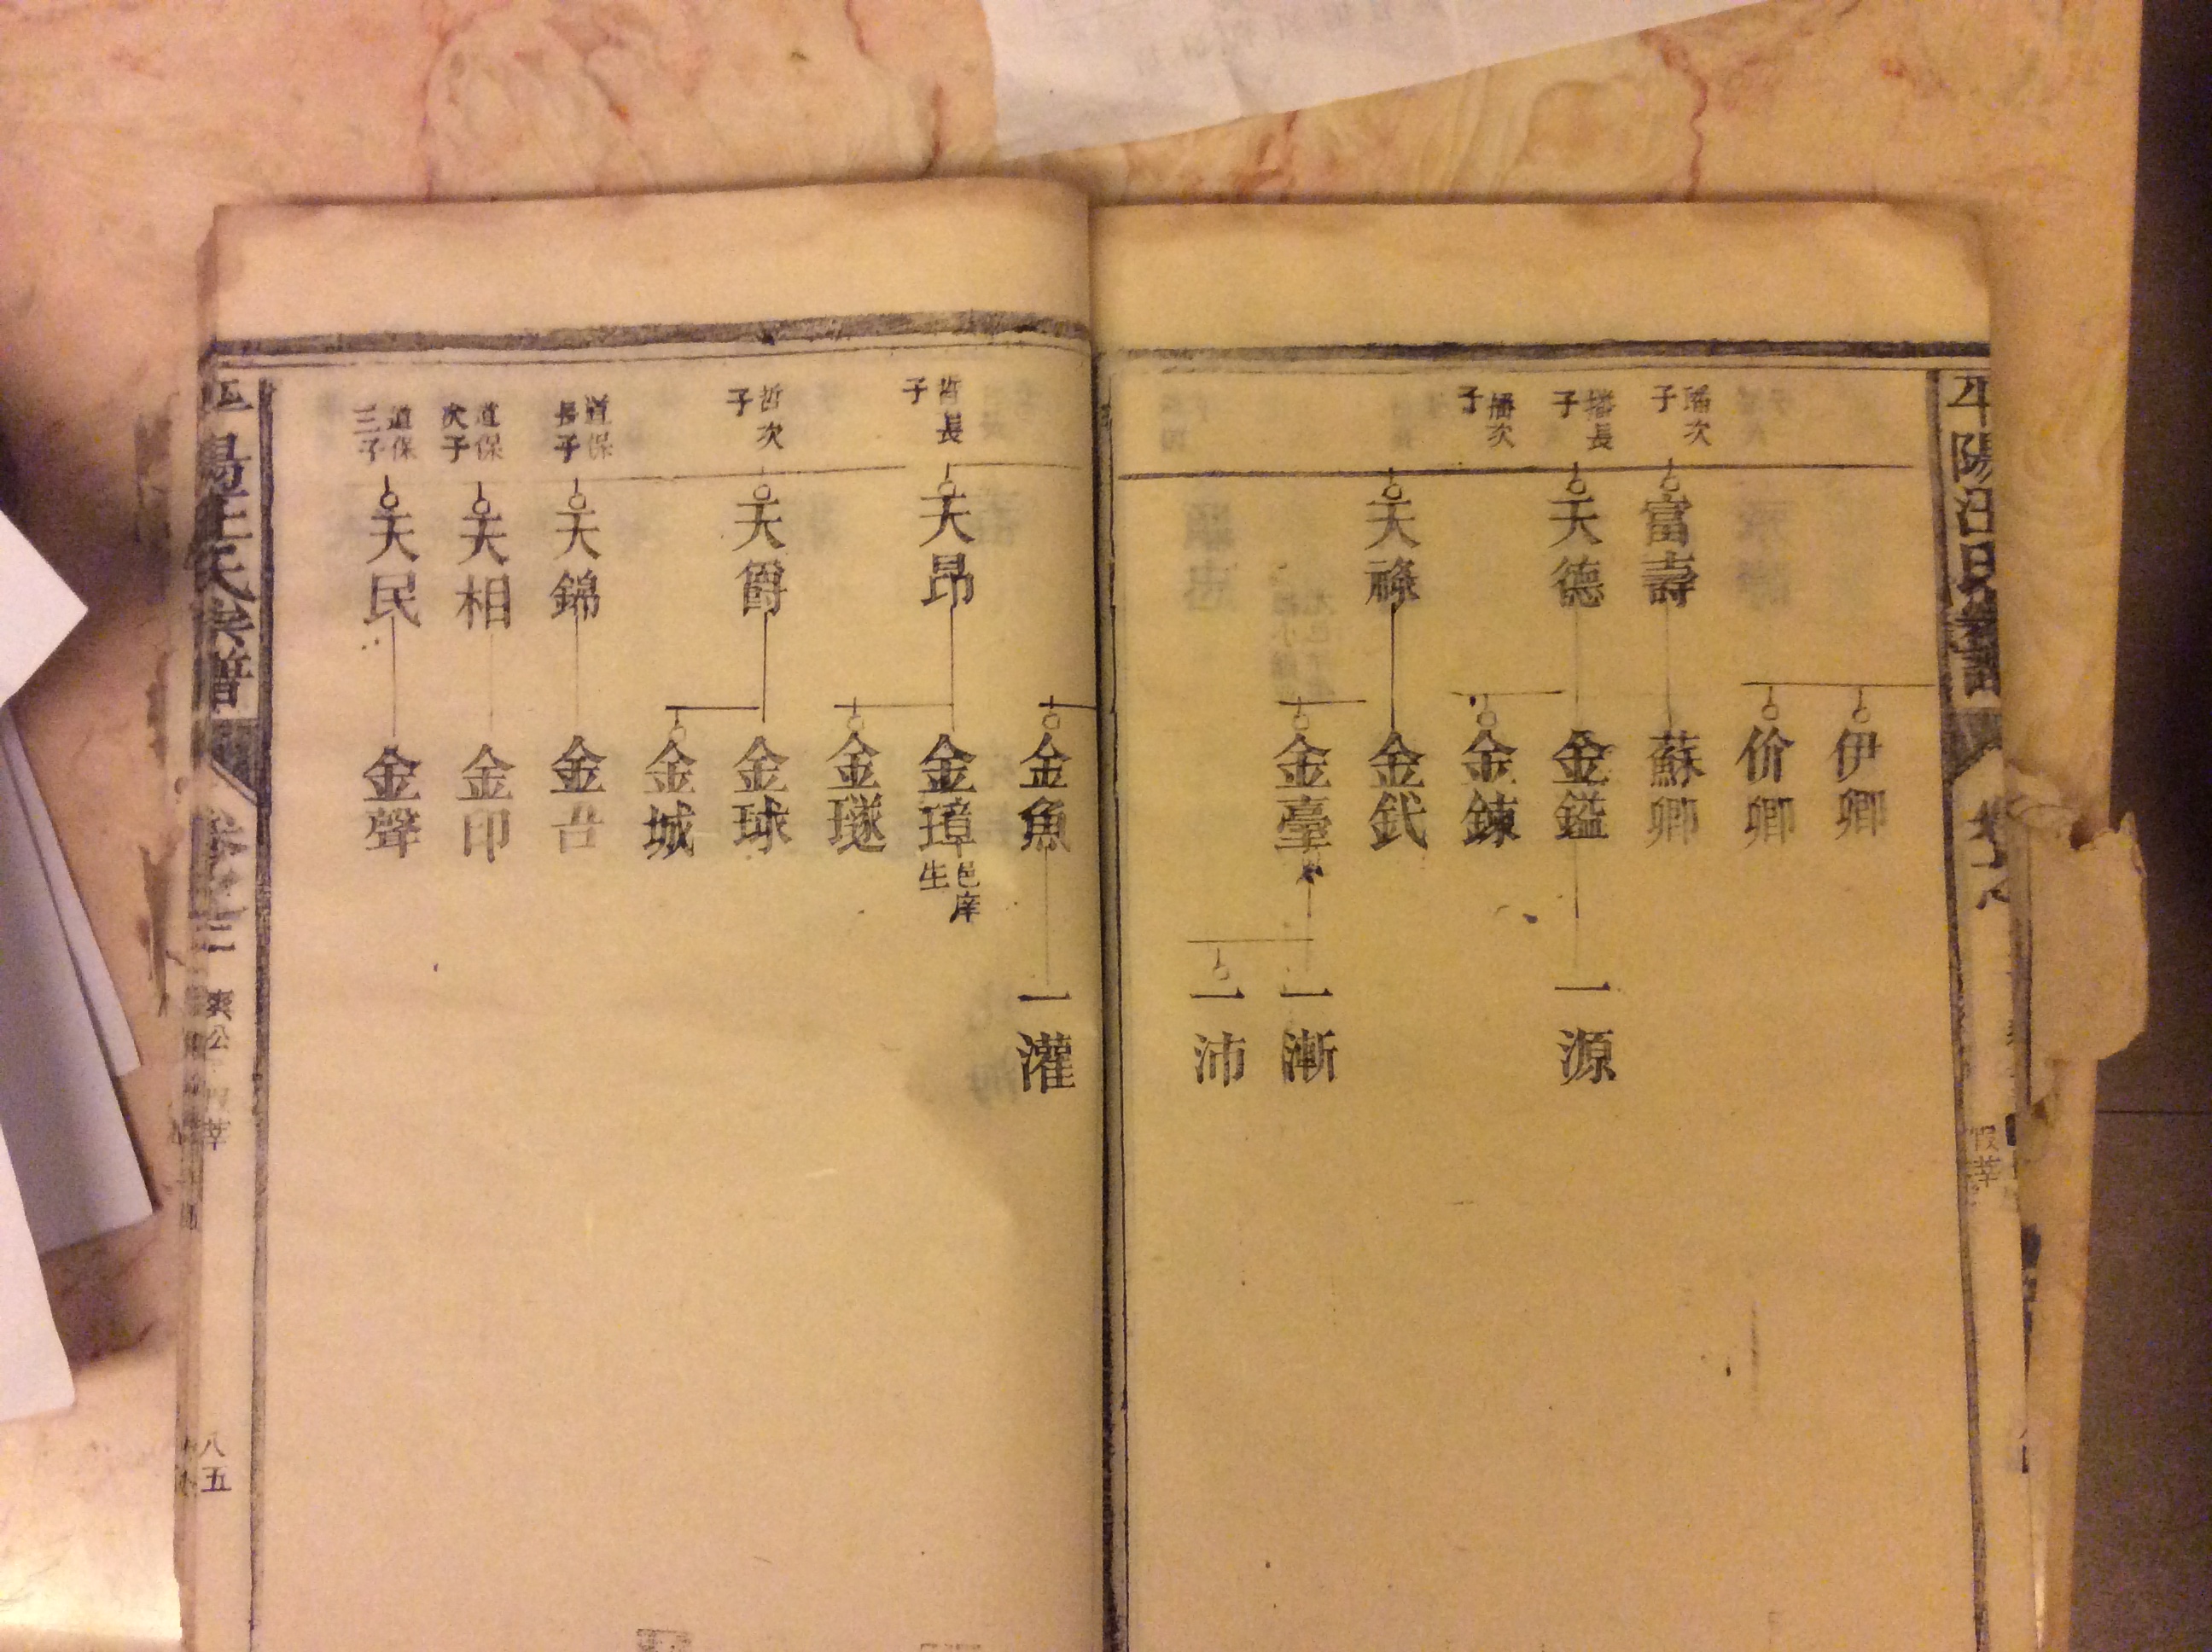 伊卿
价卿
次子
富壽
蘇卿
長子
天德
金鎰
一源
次子
金鍊
天祿
金釴
金臺
一漸
一沛
金魚
一灌
哲長子
天昂
金璋
邑庠生
金璲
哲次子
天爵
金球
金城
道保長子
天錦
金
道保次子
天相
金印
道保三子
天民
金聲
平陽汪氏宗譜
卷之三
爽公
莘
八五